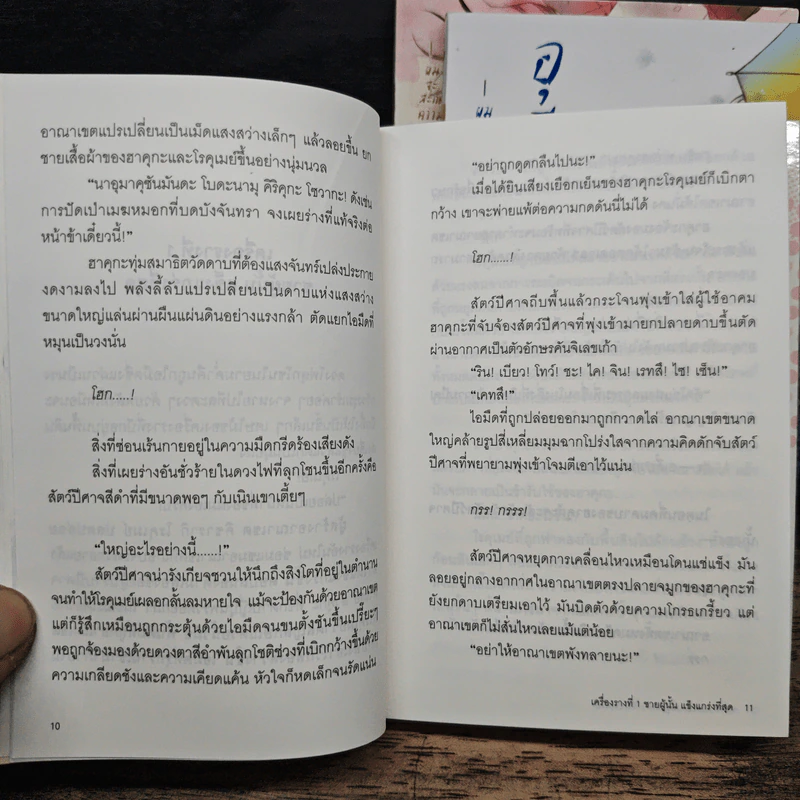 อาณาเขตแปรเปลี่ยนเป็นเม็ดแสงสว่างเล็กๆ แล้วลอยขึ้น ยก
ชายเสื้อผ้าของฮาคุกะและโรคุเมย์ขึ้นอย่างนุ่มนวล
"นาอุมาคุซันมันดะ โบดะนามุ คิริคุกะ โซวากะ! ดังเช่น
การปัดเป่าเมฆหมอกที่บดบังจันทรา จงเผยร่างที่แท้จริงต่อ
หน้าข้าเดี๋ยวนี้!"
ฮาคุกะทุ่มสมาธิตวัดดาบที่ต้องแสงจันทร์เปล่งประกาย
งดงามลงไป พลังลี้ลับแปรเปลี่ยนเป็นดาบแห่งแสงสว่าง
ขนาดใหญ่แล่นผ่านผืนแผ่นดินอย่างแรงกล้า ตัดแยกไอมืดที่
หมุนเป็นวงนั่น
โฮก.....!
สิ่งที่ซ่อนเร้นกายอยู่ในความมืดกรีดร้องเสียงดัง
สิ่งที่เผยร่างอันชั่วร้ายในดวงไฟที่ลุกโชนขึ้นอีกครั้งคือ
สัตว์ปีศาจสีดำที่มีขนาดพอๆ กับเนินเขาเตี้ยๆ
"ใหญ่อะไรอย่างนี้......!"
สัตว์ปีศาจน่ารังเกียจชวนให้นึกถึงสิงโตที่อยู่ในตำนาน
จนทำให้โรคุเมย์เผลอกลั้นลมหายใจ แม้จะป้องกันด้วยอาณาเขต
แต่ก็รู้สึกเหมือนถูกกระตุ้นด้วยไอมืดจนขนตั้งชันขึ้นเปรี๊ยะๆ
พอถูกจ้องมองด้วยดวงตาสีอำพันลุกโชติช่วงที่เบิกกว้างขึ้นด้วย
ความเกลียดชังและความเคียดแค้น หัวใจก็หดเล็กจนรัดแน่น
10
"อย่าถูกดูดกลืนไปนะ!"
เมื่อได้ยินเสียงเยือกเย็นของฮาคุกะโรคุเมย์ก็เบิกตา
กว้าง เขาจะพ่ายแพ้ต่อความกดดันนี้ไม่ได้
โฮก.....!
สัตว์ปีศาจถีบพื้นแล้วกระโจนพุ่งเข้าใส่ผู้ใช้อาคม
ฮาคุกะที่จับจ้องสัตว์ปีศาจที่พุ่งเข้ามายกปลายดาบขึ้นตัด
ผ่านอากาศเป็นตัวอักษรคันจิเลขเก้า
"ริน! เบียว! โทว์! ชะ! ไค! จิน! เรทสึ! ไซ! เซ็น!"
"เคทสึ!"
ไอมืดที่ถูกปล่อยออกมาถูกกวาดไล่ อาณาเขตขนาด
ใหญ่คล้ายรูปสี่เหลี่ยมมุมฉากโปร่งใสจากความคิดดักจับสัตว์
ปีศาจที่พยายามพุ่งเข้าโจมตีเอาไว้แน่น
กรร! กรรร!
สัตว์ปีศาจหยุดการเคลื่อนไหวเหมือนโดนแช่แข็ง มัน
ลอยอยู่กลางอากาศในอาณาเขตตรงปลายจมูกของฮาคุกะที่
ยังยกดาบเตรียมเอาไว้ มันบิดตัวด้วยความโกรธเกรี้ยว แต่
อาณาเขตก็ไม่สั่นไหวเลยแม้แต่น้อย
"อย่าให้อาณาเขตพังทลายนะ!"
เครื่องรางที่ 1 ชายผู้นั้น แข็งแกร่งที่สุด 11